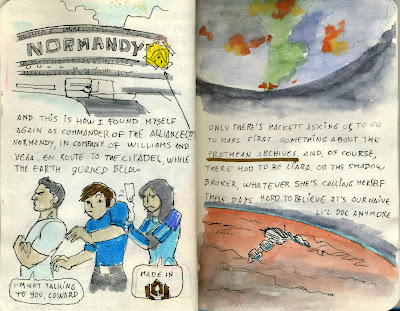 NORMANDY
AND THIS IS HOW I FOUND MYSELF
AGAIN AS COMMANDER OF THE ALLIANCE(??)
NORMANDY, IN COMPANY OF WILLIAMS AND
VEGA, EN ROUTE TO THE CITADEL, WHILE
THE EARTH BURNED BELOW
I'M NOT TALKING
TO YOU, COWARD
MADE IN
ONLY THERE'S HACKETT ASKING US TO GO
TO MARS FIRST, SOMETHING ABOUT THE
PROTHEAN ARCHIVES. AND, OF COURSE,
THERE HAD TO BE LIARA, OR THE SHADOW
BROKER, WHATEVER SHE'S CALLING HERSELF
THESE DAYS. HARD TO BELIEVE IT'S OUR NAIVE
LI'L DOC ANYMORE